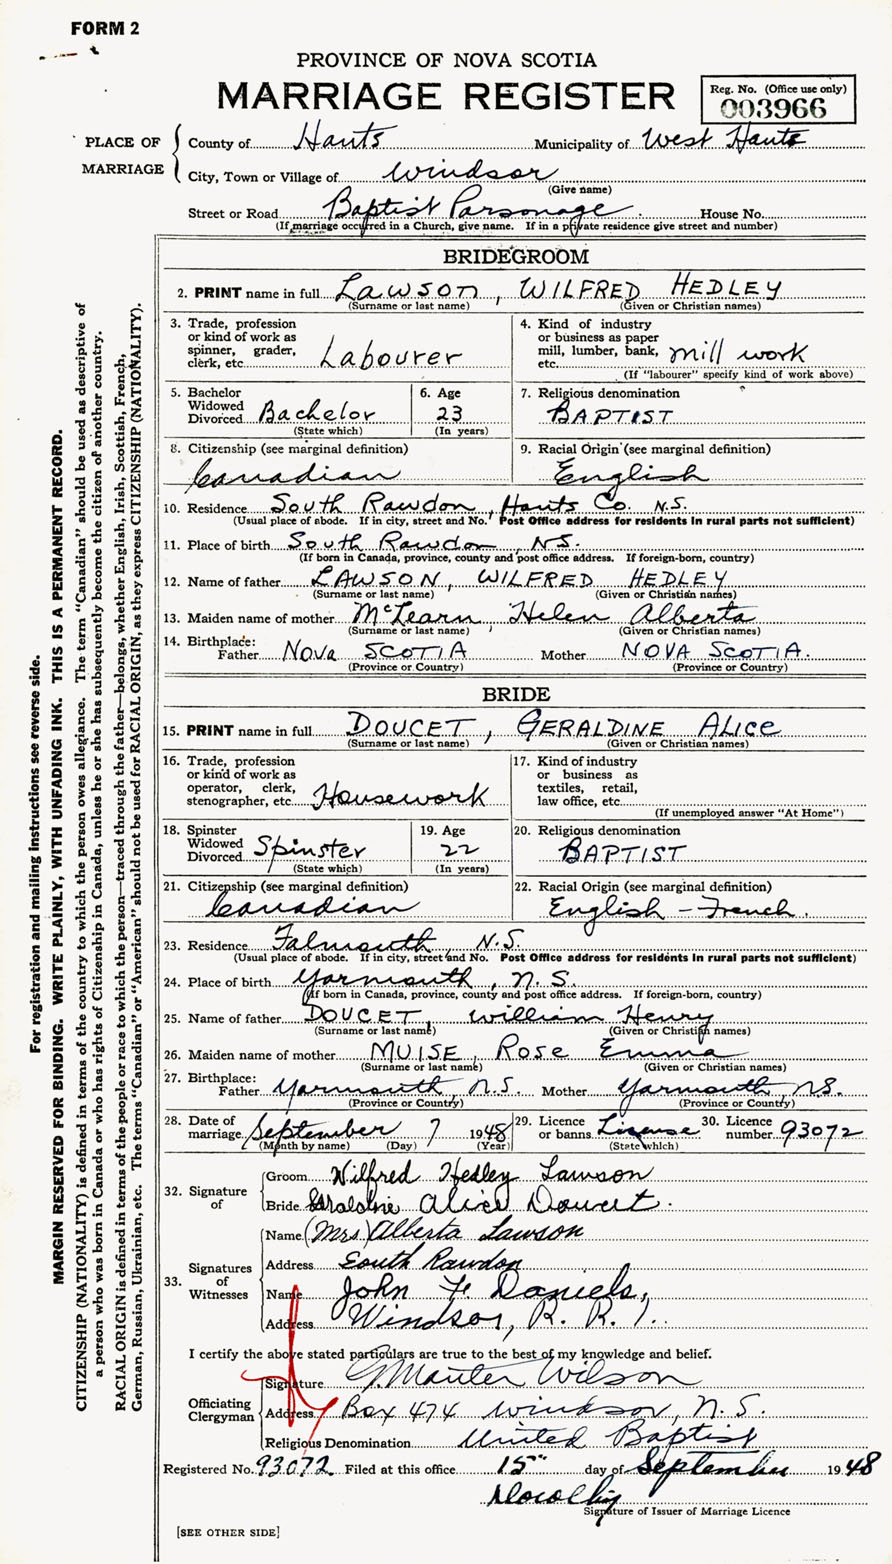 FORM 2
PROVINCE OF NOVA SCOTIA
MARRIAGE REGISTER
Reg. No. (Office use only)
003966
PLACE OF MARRIAGE
County of Hants Municipality of West Hants
City, Town or Village of Windsor
(Give name)
Street or Road Baptist Parsonage. House No.
(If marriage occurred in a Church, give name. If in a private residence give street and number)
BRIDEGROOM
2. PRINT name in full LAWSON, WILFRED HEDLEY
(Surname or last name) (Given or Christian names)
3. Trade, profession or kind of work as spinner, grader, clerk, etc. Labourer
4. Kind of industry or business as paper mill, lumber, bank, etc. Mill work
(If "labourer" specify kind of work above)
5. Bachelor Widowed Divorced Bachelor
(State which)
6. Age 23
(In years)
7. Religious denomination
BAPTIST
8. Citizenship (see marginal definition)
Canadian
9. Racial Origin (see marginal definition)
English
10. Residence South Rawdon, Hants Co. N.S.
(Usual place of abode. If in city, street and No. Post Office address for residents in rural parts not sufficient)
11. Place of birth South Rawdon, N.S.
(If born in Canada, province, county and post office address. If foreign-born, country)
12. Name of father LAWSON, WILFRED HEDLEY
(Surname or last name) (Given or Christian names)
13. Maiden name of mother McLearn, Helen Alberta
(Surname or last name) (Given or Christian names)
14. Birthplace:
Father Nova SCOTIA Mother NOVA SCOTIA.
(Province or Country) (Province or Country)
BRIDE
15. PRINT name in full DOUCET, GERALDINE ALICE
(Surname or last name) (Given or Christian names)
16. Trade, profession or kind of work as operator, clerk, stenographer, etc. Housework
17. Kind of industry or business as textiles, retail, law office, etc.
(If unemployed answer "At Home")
18. Spinster Widowed Divorced Spinster
(State which)
19. Age 22
(In years)
20. Religious denomination
BAPTIST
21. Citizenship (see marginal definition)
Canadian
22. Racial Origin (see marginal definition)
English - French.
23. Residence Falmouth, N.S.
(Usual place of abode. If in city, street and No. Post Office address for residents in rural parts not sufficient)
24. Place of birth Yarmouth, N.S.
(If born in Canada, province, county and post office address. If foreign-born, country)
25. Name of father DOUCET, William Henry
(Surname or last name) (Given or Christian names)
26. Maiden name of mother MUISE, Rose Emma
(Surname or last name) (Given or Christian names)
27. Birthplace:
Father Yarmouth N.S. Mother Yarmouth N.S.
(Province or Country) (Province or Country)
28. Date of marriage September 7 1948
(Month by name) (Day) (Year)
29. Licence or banns License
(State which)
30. Licence number 93072
32. Signature of
Groom Wilfred Hedley Lawson
Bride Geraldine Alice Doucet.
33. Signatures of Witnesses
Name (Mrs) Alberta Lawson
Address South Rawdon
Name John F. Daniels,
Address Windsor, R.R. 1.
I certify the above stated particulars are true to the best of my knowledge and belief.
Officiating Clergyman
Signature Manter Wilson
Address Box 474 Windsor, N.S.
Religious Denomination United Baptist
Registered No. 93072 Filed at this office 15" day of September 1948
Signature of Issuer of Marriage Licence
[SEE OTHER SIDE]
For registration and mailing instructions see reverse side.
MARGIN RESERVED FOR BINDING. WRITE PLAINLY, WITH UNFADING INK. THIS IS A PERMANENT RECORD.
CITIZENSHIP (NATIONALITY) is defined in terms of the country to which the person owes allegiance. The term "Canadian" should be used as descriptive of
a person who was born in Canada or who has rights of Citizenship in Canada, unless he or she has subsequently become the citizen of another country.
RACIAL ORIGIN is defined in terms of the people or race to which the person—traced through the father—belongs, whether English, Irish, Scottish, French,
German, Russian, Ukrainian, etc. The terms "Canadian" or "American" should not be used for RACIAL ORIGIN, as they express CITIZENSHIP (NATIONALITY).